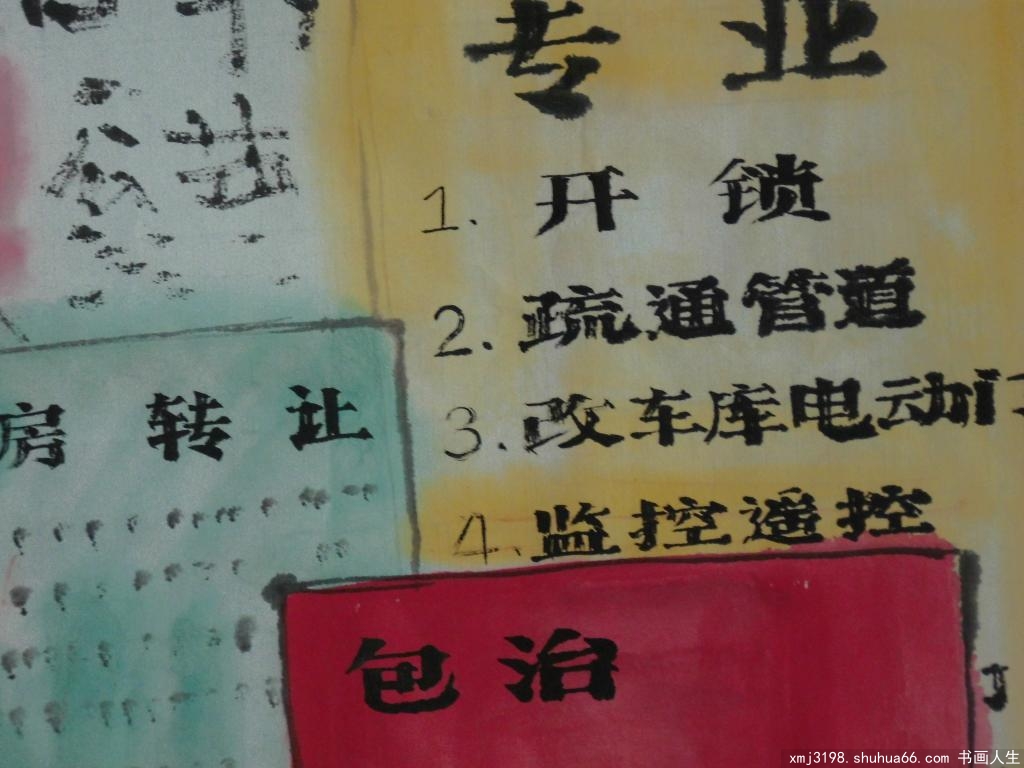 专业
1. 开锁
2. 疏通管道
3. 改车库电动门
4. 监控遥控
房转让
包治
xmj3198.shuhua66.com 书画人生